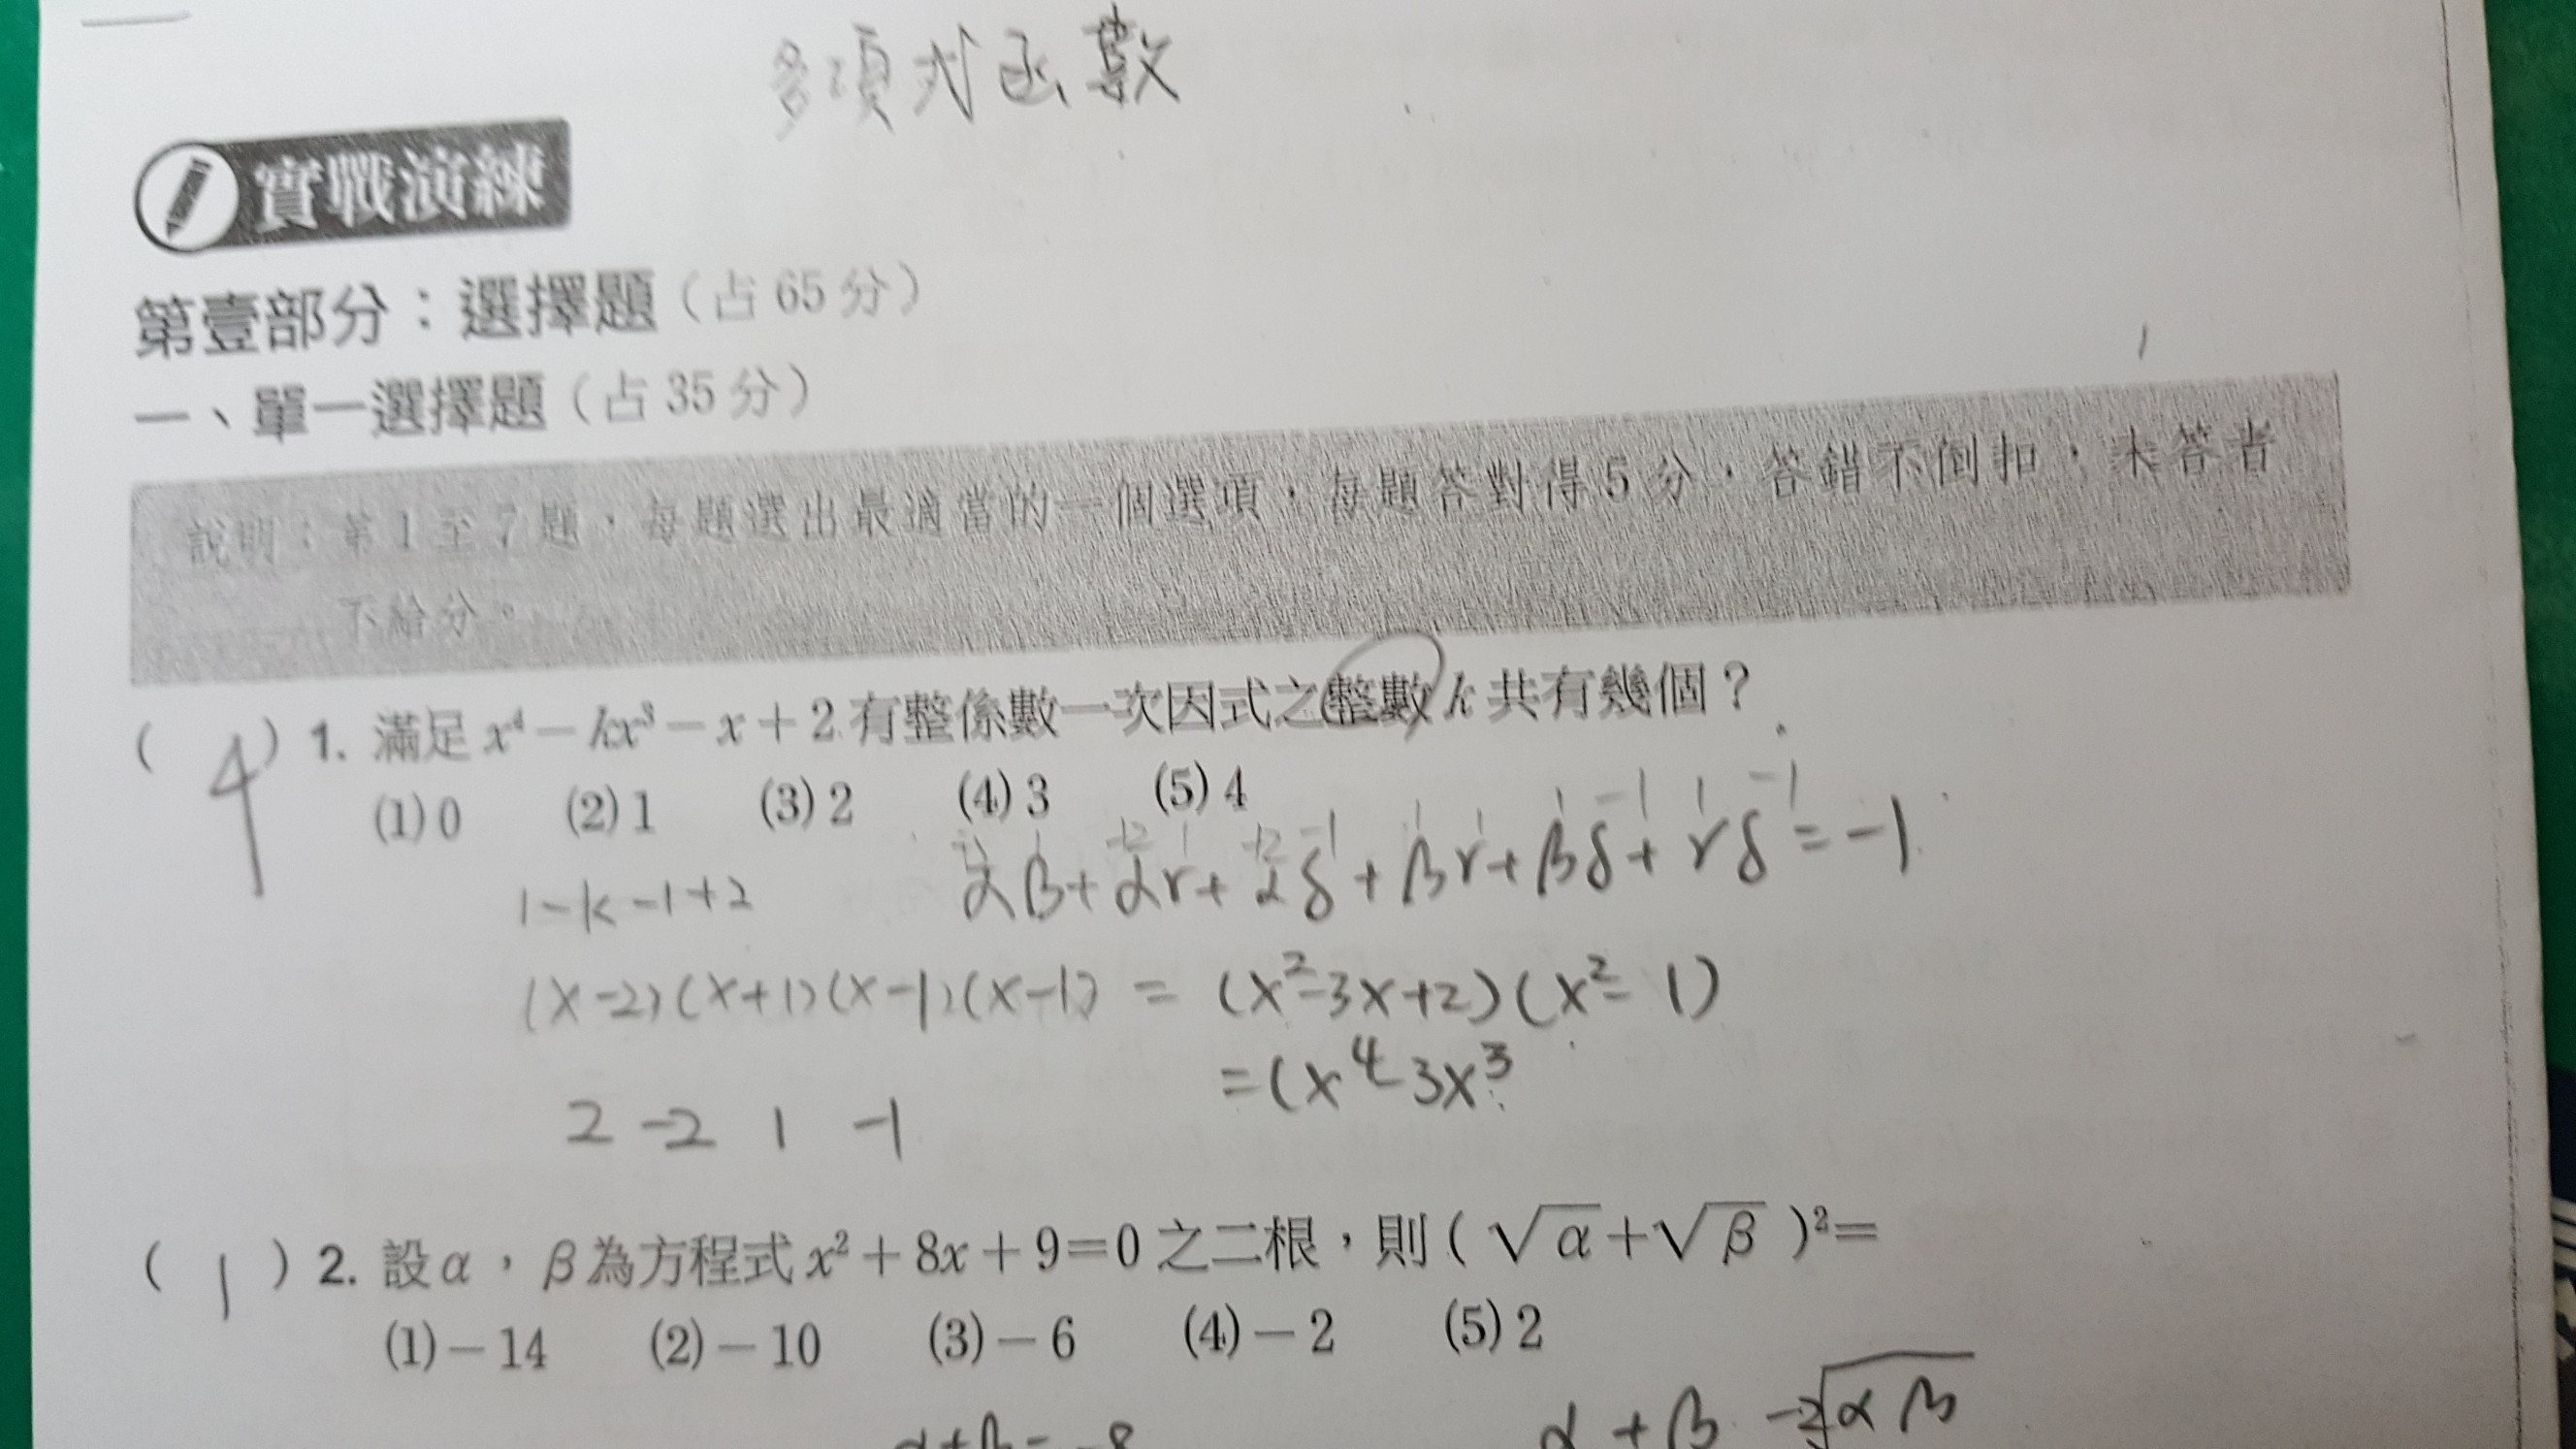 多項式函數
實戰演練
第壹部分：選擇題（占 65 分）
一、單一選擇題（占 35 分）
說明：第 1 至 7 題，每題選出最適當的一個選項，每題答對得 5 分，答錯不倒扣，未答者
不給分。
( 4 ) 1. 滿足 x⁴－kx³－x＋2 有整係數一次因式之整數 k 共有幾個？
(1) 0 (2) 1 (3) 2 (4) 3 (5) 4
1-k-1+2
αβ+αr+αδ+βr+βδ+rδ=-1
(x-2)(x+1)(x-1)(x-1) = (x²-3x+2)(x²-1)
=(x⁴-3x³
2 -2 1 -1
( 1 ) 2. 設α，β為方程式 x²＋8x＋9=0 之二根，則 ( √α＋√β )²=
(1)－14 (2)－10 (3)－6 (4)－2 (5) 2
α+β=-8
α+β -2√αβ